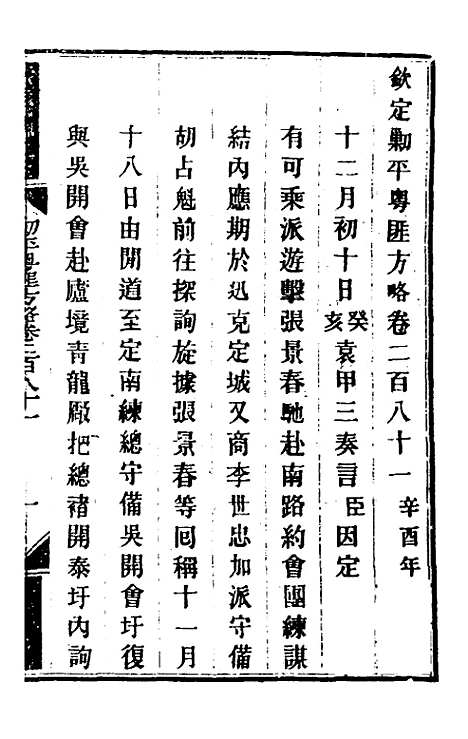 欽定勦平粵匪方略卷二百八十一 辛酉年
十二月初十日癸亥袁甲三奏言臣因定
有可乘派遊擊張景春馳赴南路約會團練謀
結內應期於迅克定城又商李世忠加派守備
胡占魁前往探詢旋據張景春等囘稱十一月
十八日由閒道至定南練總守備吳開會圩復
與吳開會赴廬境青龍厰把總褚開泰圩內詢
平粵匪方略卷二百八十一
一